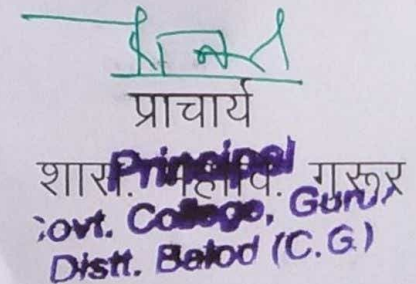 प्राचार्य
शास. महावि. गुरूर
Principal
Govt. College, Gurur
Distt. Balod (C.G.)